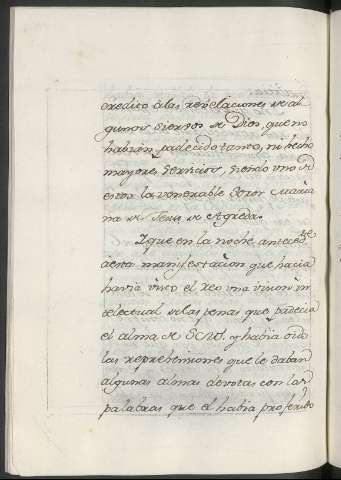 credito à las revelaciones de al
gunos siervos de Dios, que no
habrán padecido tanto, ni hecho
mayores servicios, siendo uno de
estos la venerable Soror Maria
na de Jesus de Agreda.
Y que en la noche anteced.te
à esta manifestacion que hacia
havia visto el reo una vision in
telectual de las penas que padecia
el alma de y habia oido
las reprehensiones que le daban
algunas almas devotas con las
palabras que el habia proferido